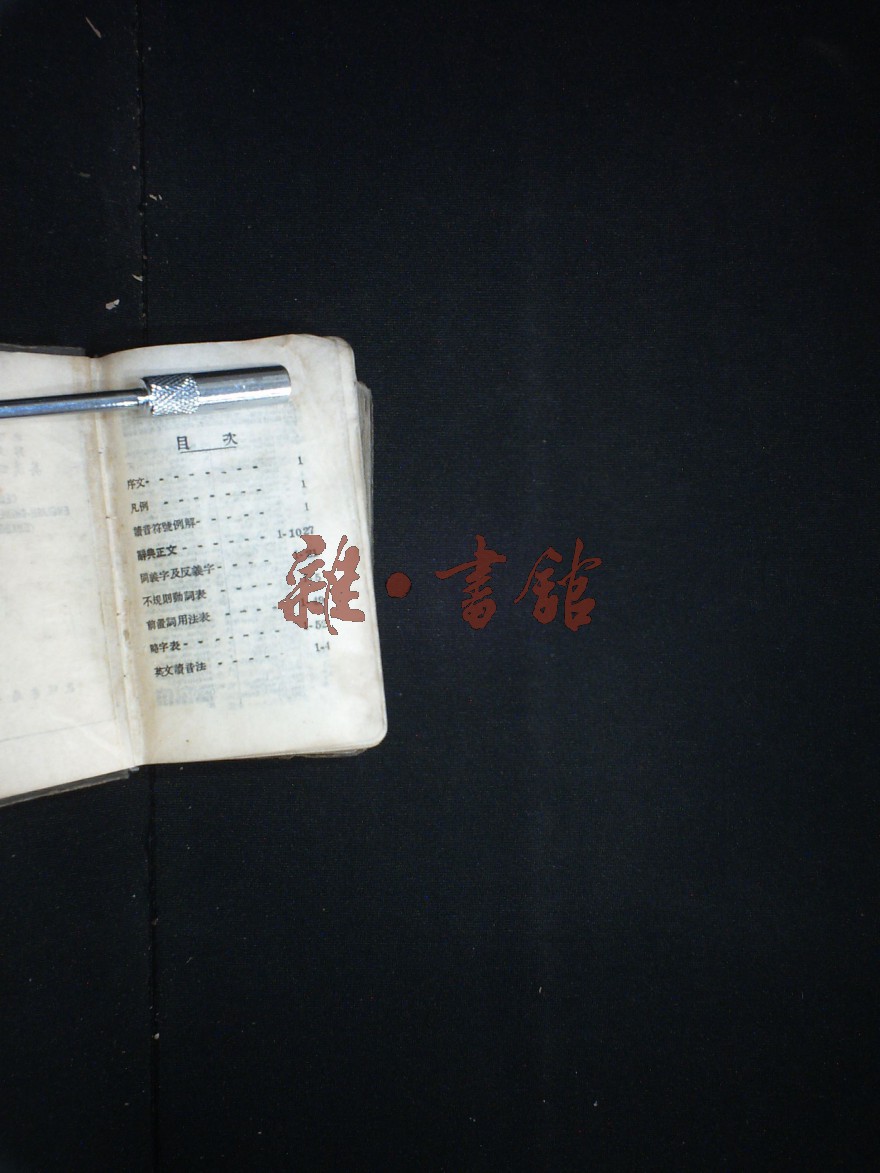 目 次
序文 - - - - - - - - - 1
凡例 - - - - - - - - 1
讀音符號例解 - - - - - - 1
辭典正文 - - - - - - - 1-1027
同義字及反義字 - - - - -
不規則動詞表 - - - - - -
前置詞用法表 - - - - -
略字表 - - - - - - - -
英文讀音法 - - - - - - 1-4
雜·書館